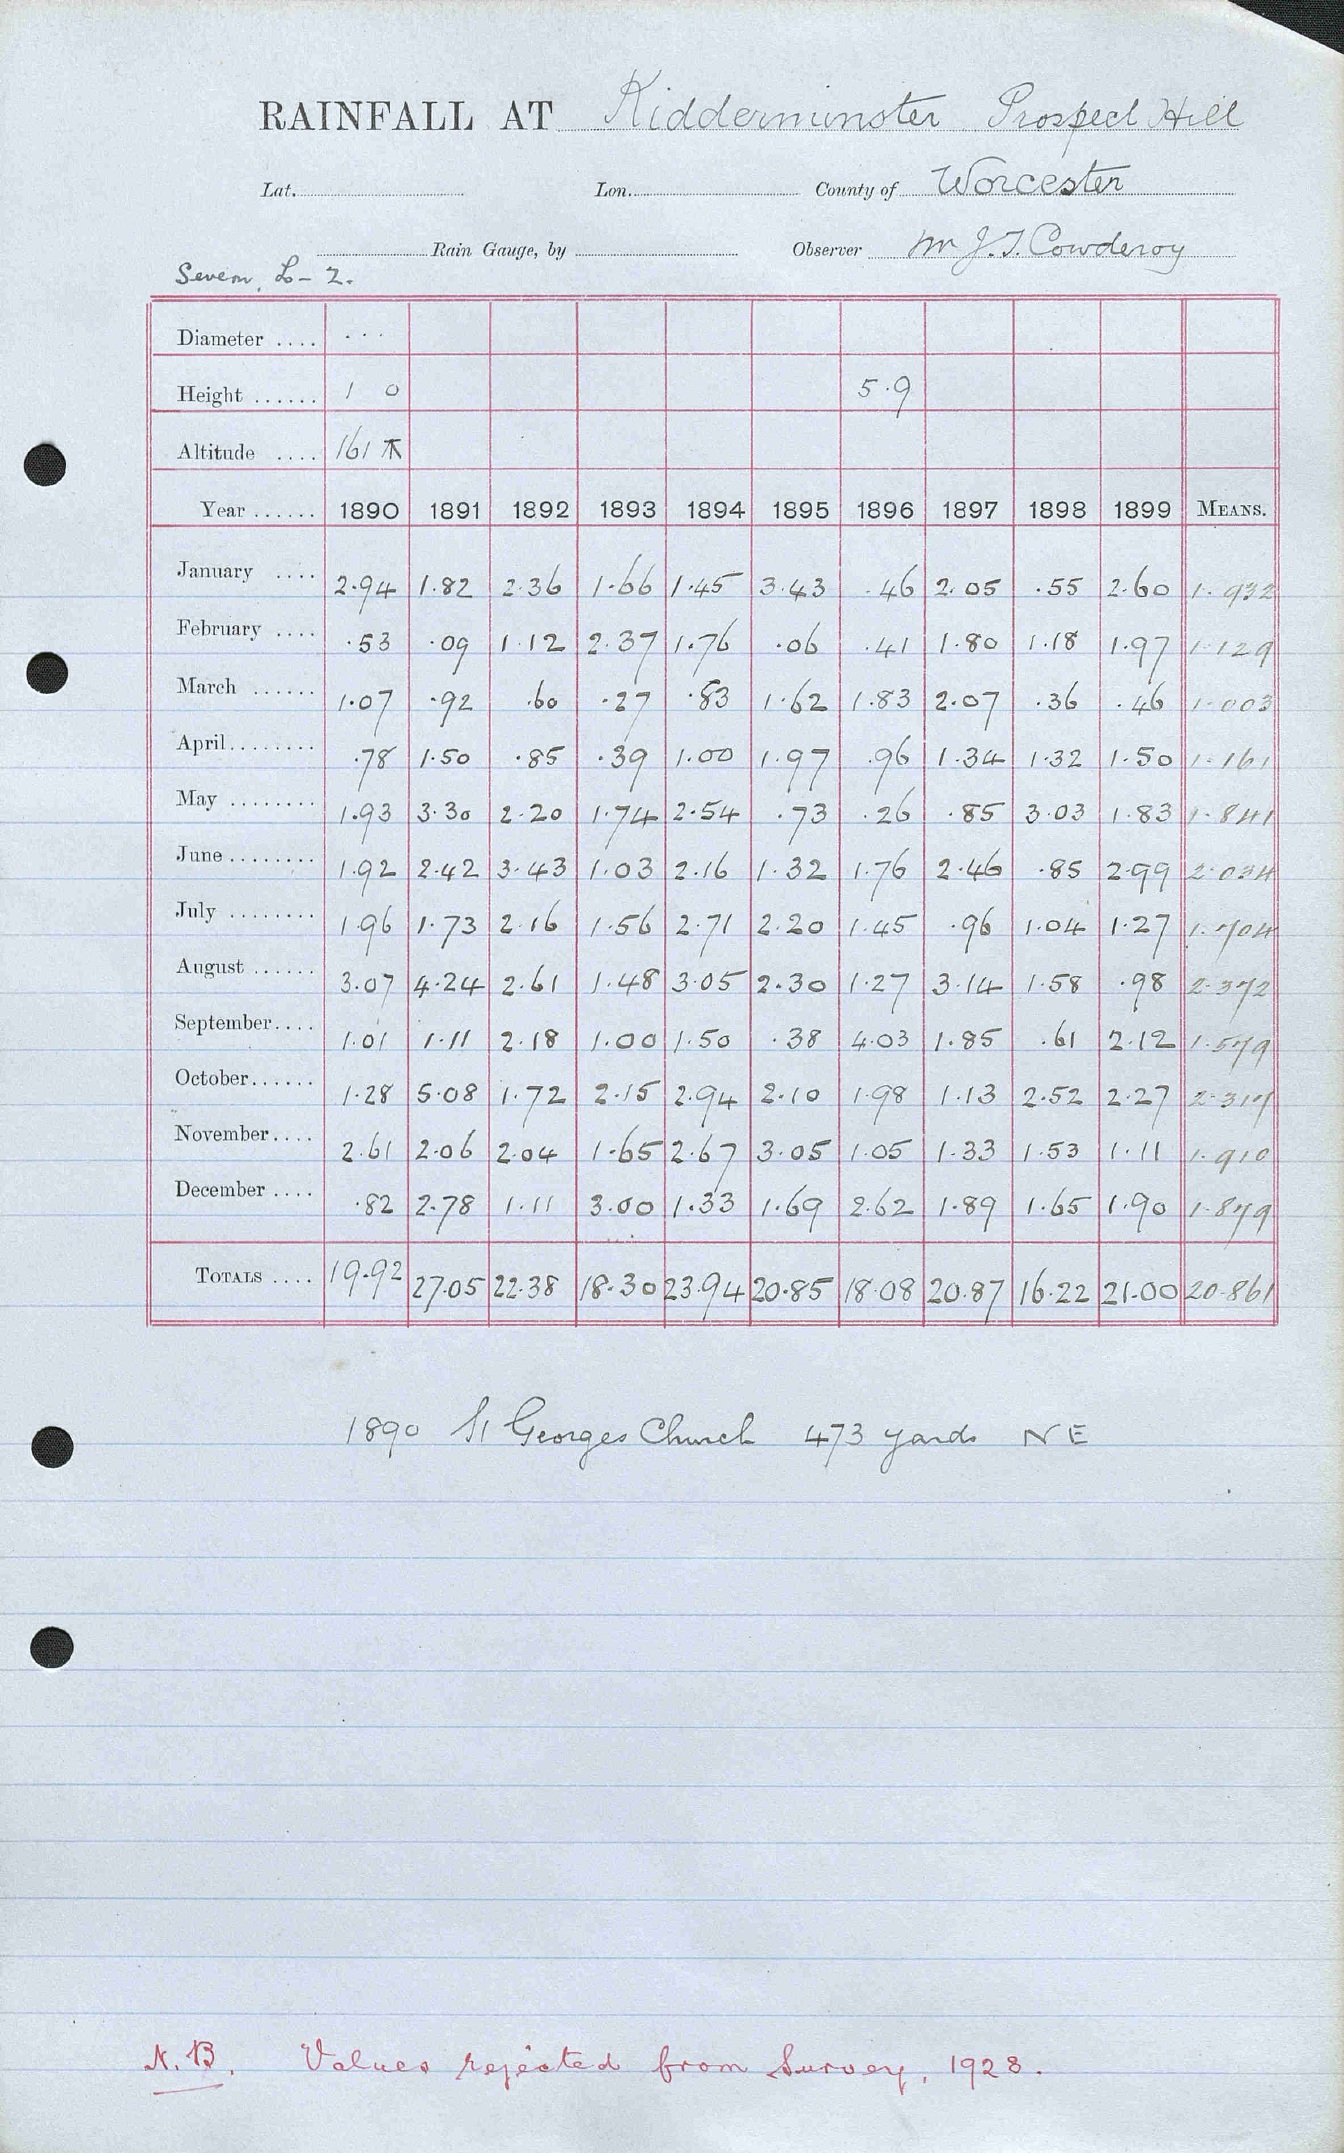 RAINFALL AT Kidderminster Prospect Hill
Lat. Lon. County of Worcester
Rain Gauge, by Observer Mr J.T. Cowderoy
Severn, L-2.
Diameter .... ...
Height ...... 1 0 5.9
Altitude .... 161
Year ...... 1890 1891 1892 1893 1894 1895 1896 1897 1898 1899 MEANS.
January .... 2.94 1.82 2.36 1.66 1.45 3.43 .46 2.05 .55 2.60 1.932
February .... .53 .09 1.12 2.37 1.76 .06 .41 1.80 1.18 1.97 1.129
March ...... 1.07 .92 .60 .27 .83 1.62 1.83 2.07 .36 .46 1.003
April........ .78 1.50 .85 .39 1.00 1.97 .96 1.34 1.32 1.50 1.161
May ........ 1.93 3.30 2.20 1.74 2.54 .73 .26 .85 3.03 1.83 1.841
June ........ 1.92 2.42 3.43 1.03 2.16 1.32 1.76 2.46 .85 2.99 2.034
July ........ 1.96 1.73 2.16 1.56 2.71 2.20 1.45 .96 1.04 1.27 1.704
August ...... 3.07 4.24 2.61 1.48 3.05 2.30 1.27 3.14 1.58 .98 2.372
September.... 1.01 1.11 2.18 1.00 1.50 .38 4.03 1.85 .61 2.12 1.579
October...... 1.28 5.08 1.72 2.15 2.94 2.10 1.98 1.13 2.52 2.27 2.317
November.... 2.61 2.06 2.04 1.65 2.67 3.05 1.05 1.33 1.53 1.11 1.910
December .... .82 2.78 1.11 3.00 1.33 1.69 2.62 1.89 1.65 1.90 1.879
TOTALS .... 19.92 27.05 22.38 18.30 23.94 20.85 18.08 20.87 16.22 21.00 20.861
1890 St Georges Church 473 yards NE
N.B. Values rejected from Survey, 1928.